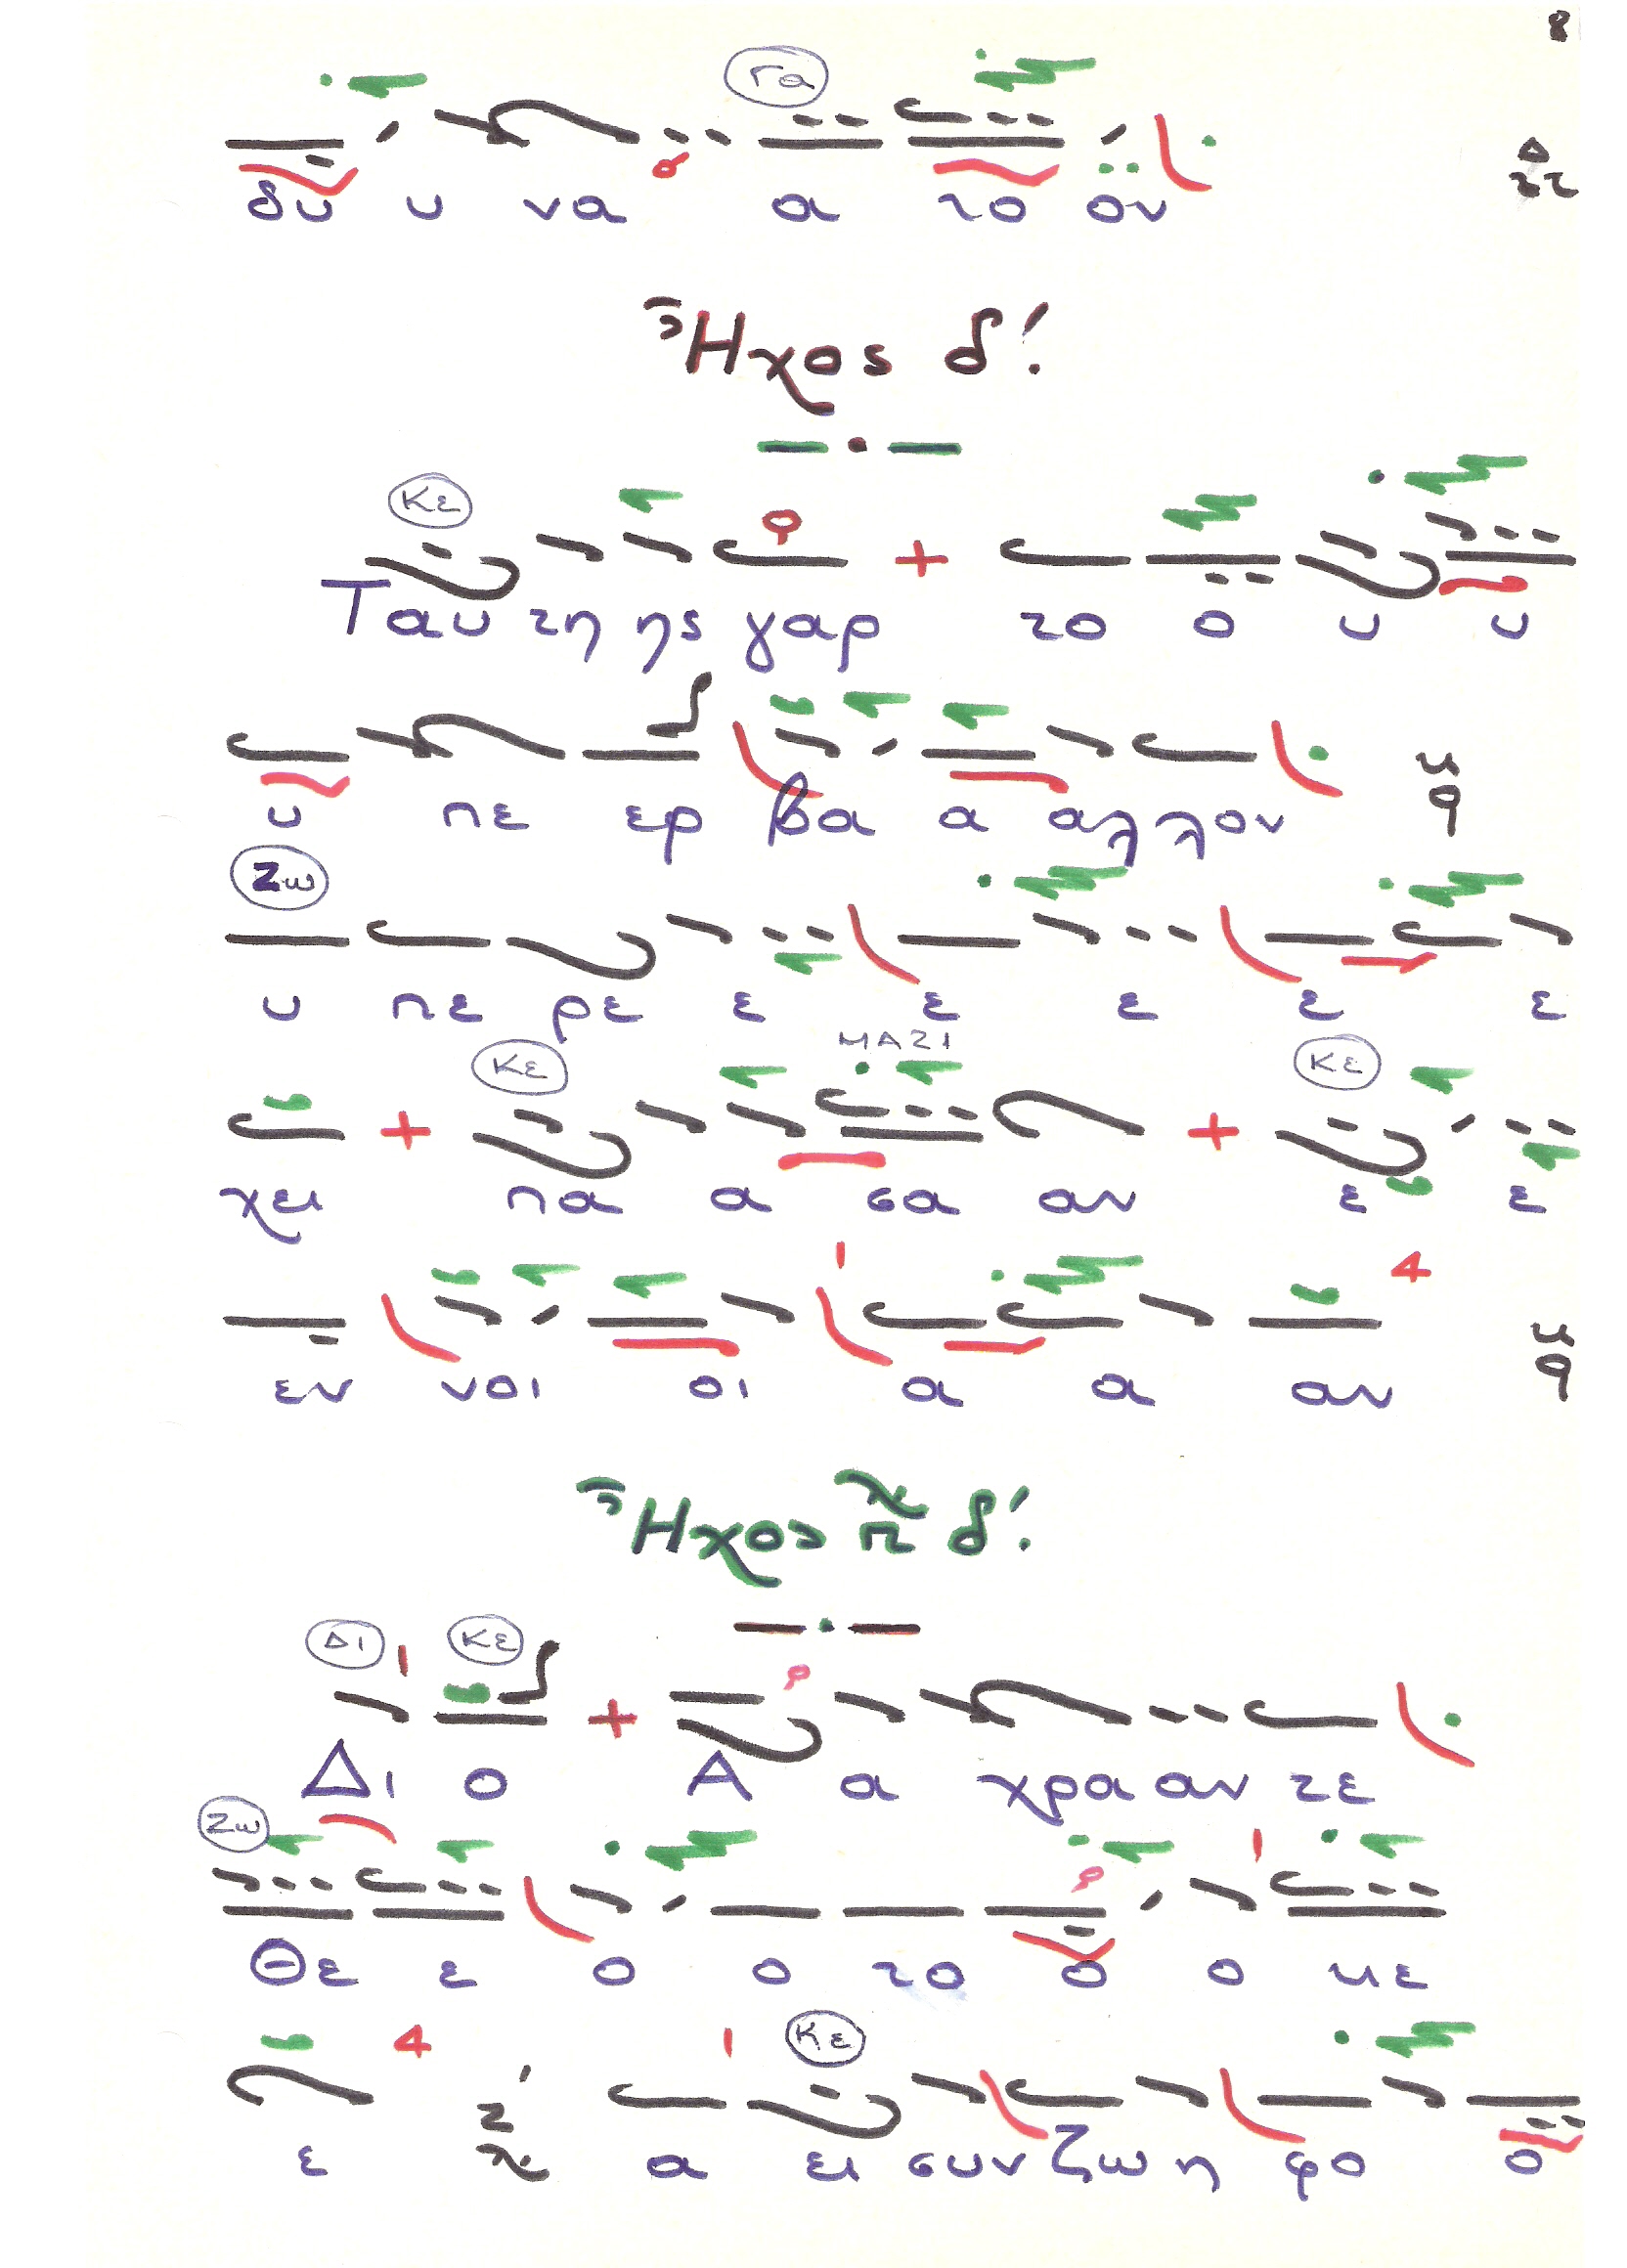 8
Γα
δυ υ να α το ον
Δ
Ἦχος δ!
Κε
Ταυ τη ης γαρ το ο υ υ
υ πε ερ βα α αλλον
Ζω
υ πε ρε ε ε ε ε ε
Κε ΜΑΖΙ Κε
χει πα α σα αν ε ε
4
εν νοι οι α α αν
Ἦχος π δ!
Δι Κε
Δι ο Α α χρα αν τε
Ζω
Θε ε ο ο το ο ο με
4 Κε
ε α ει συν ζω η φο ο